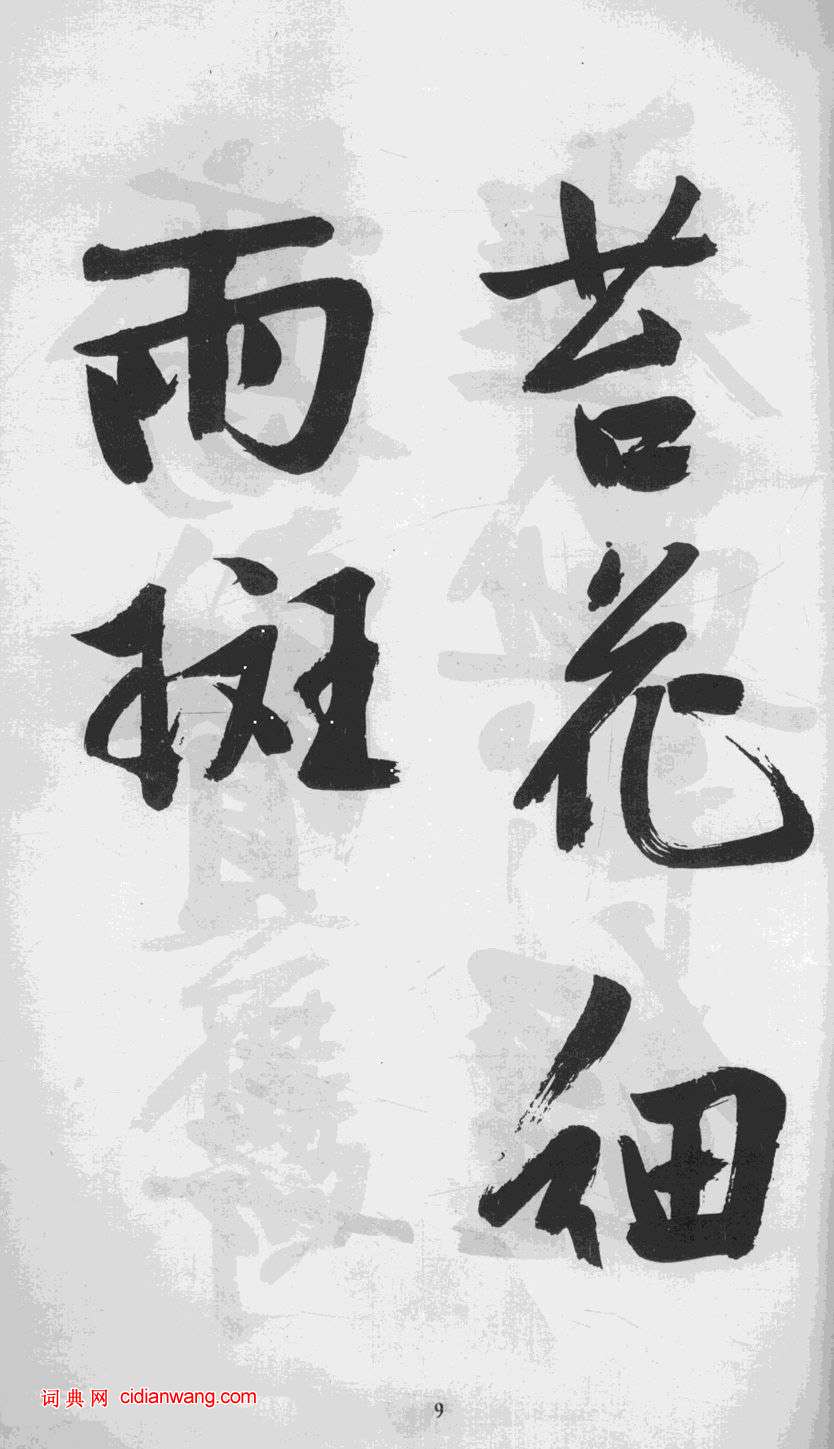 苔花細
雨斑
词典网 cidianwang.com
9